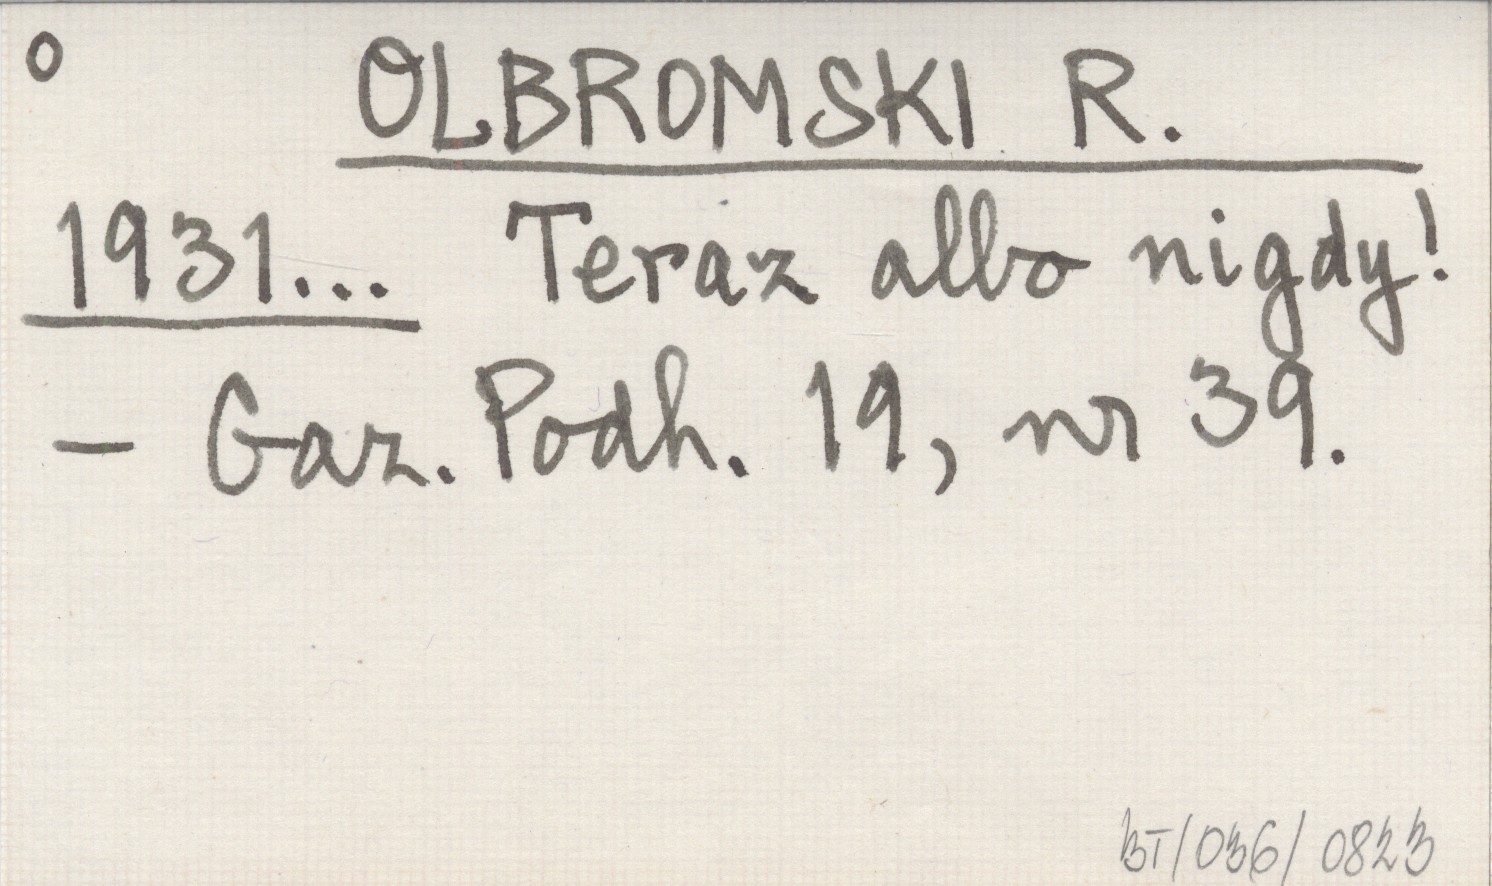 O OLBROMSKI R.
1931... Teraz albo nigdy!
— Gaz. Podh. 19, nr 39.
BT/036/0823